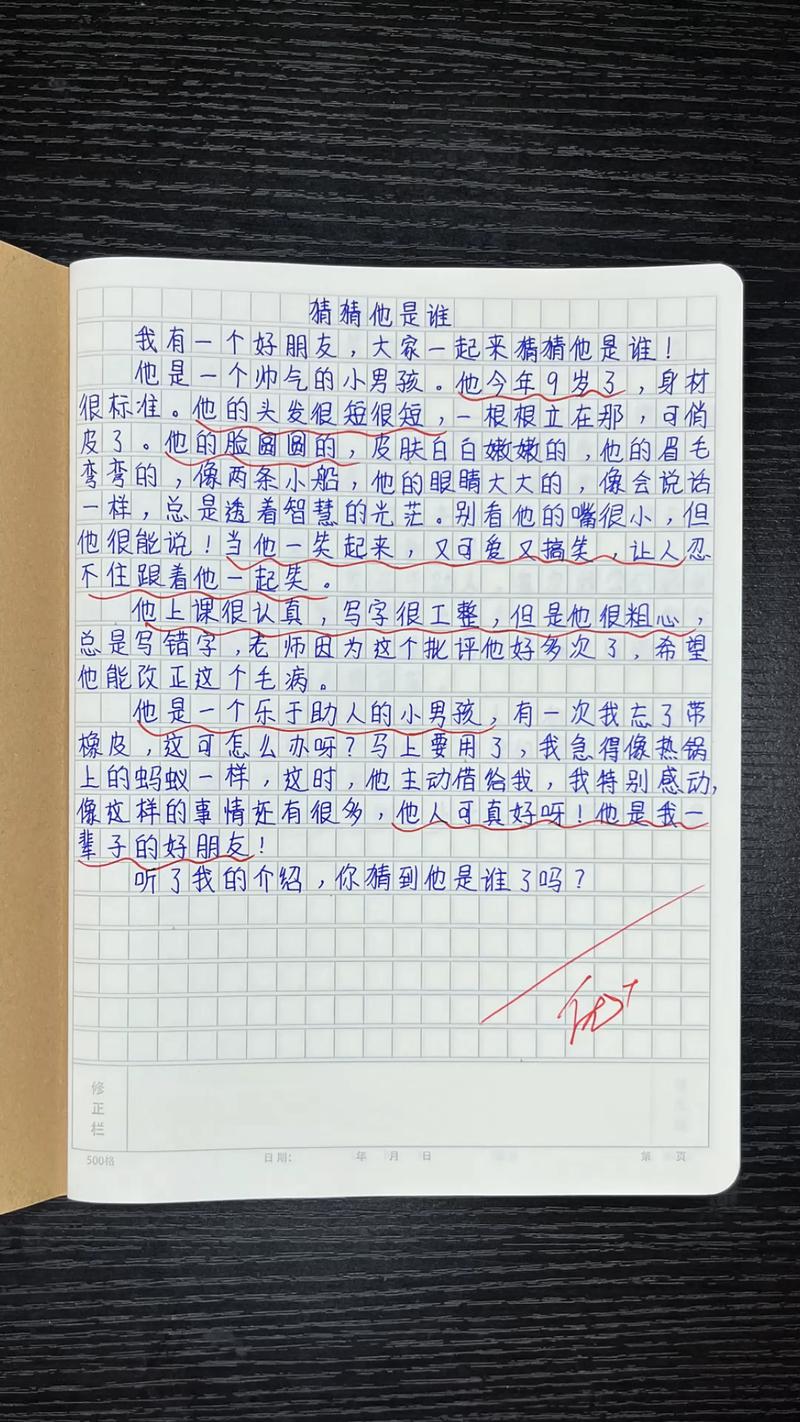 猜猜他是谁
我有一个好朋友，大家一起来猜猜他是谁！
他是一个帅气的小男孩。他今年9岁了，身材
很标准。他的头发很短很短，一根根立在那，可俏
皮了。他的脸圆圆的，皮肤白白嫩嫩的，他的眉毛
弯弯的，像两条小船，他的眼睛大大的，像会说话
一样，总是透着智慧的光芒。别看他的嘴很小，但
他很能说！当他一笑起来，又可爱又搞笑，让人忍
不住跟着他一起笑。
他上课很认真，写字很工整，但是他很粗心，
总是写错字，老师因为这个批评他好多次了，希望
他能改正这个毛病。
他是一个乐于助人的小男孩，有一次我忘了带
橡皮，这可怎么办呀？马上要用了，我急得像热锅
上的蚂蚁一样，这时，他主动借给我，我特别感动，
像这样的事情还有很多，他人可真好呀！他是我一
辈子的好朋友！
听了我的介绍，你猜到他是谁了吗？
优+
修正栏
500格 日期： 年 月 日 第 页